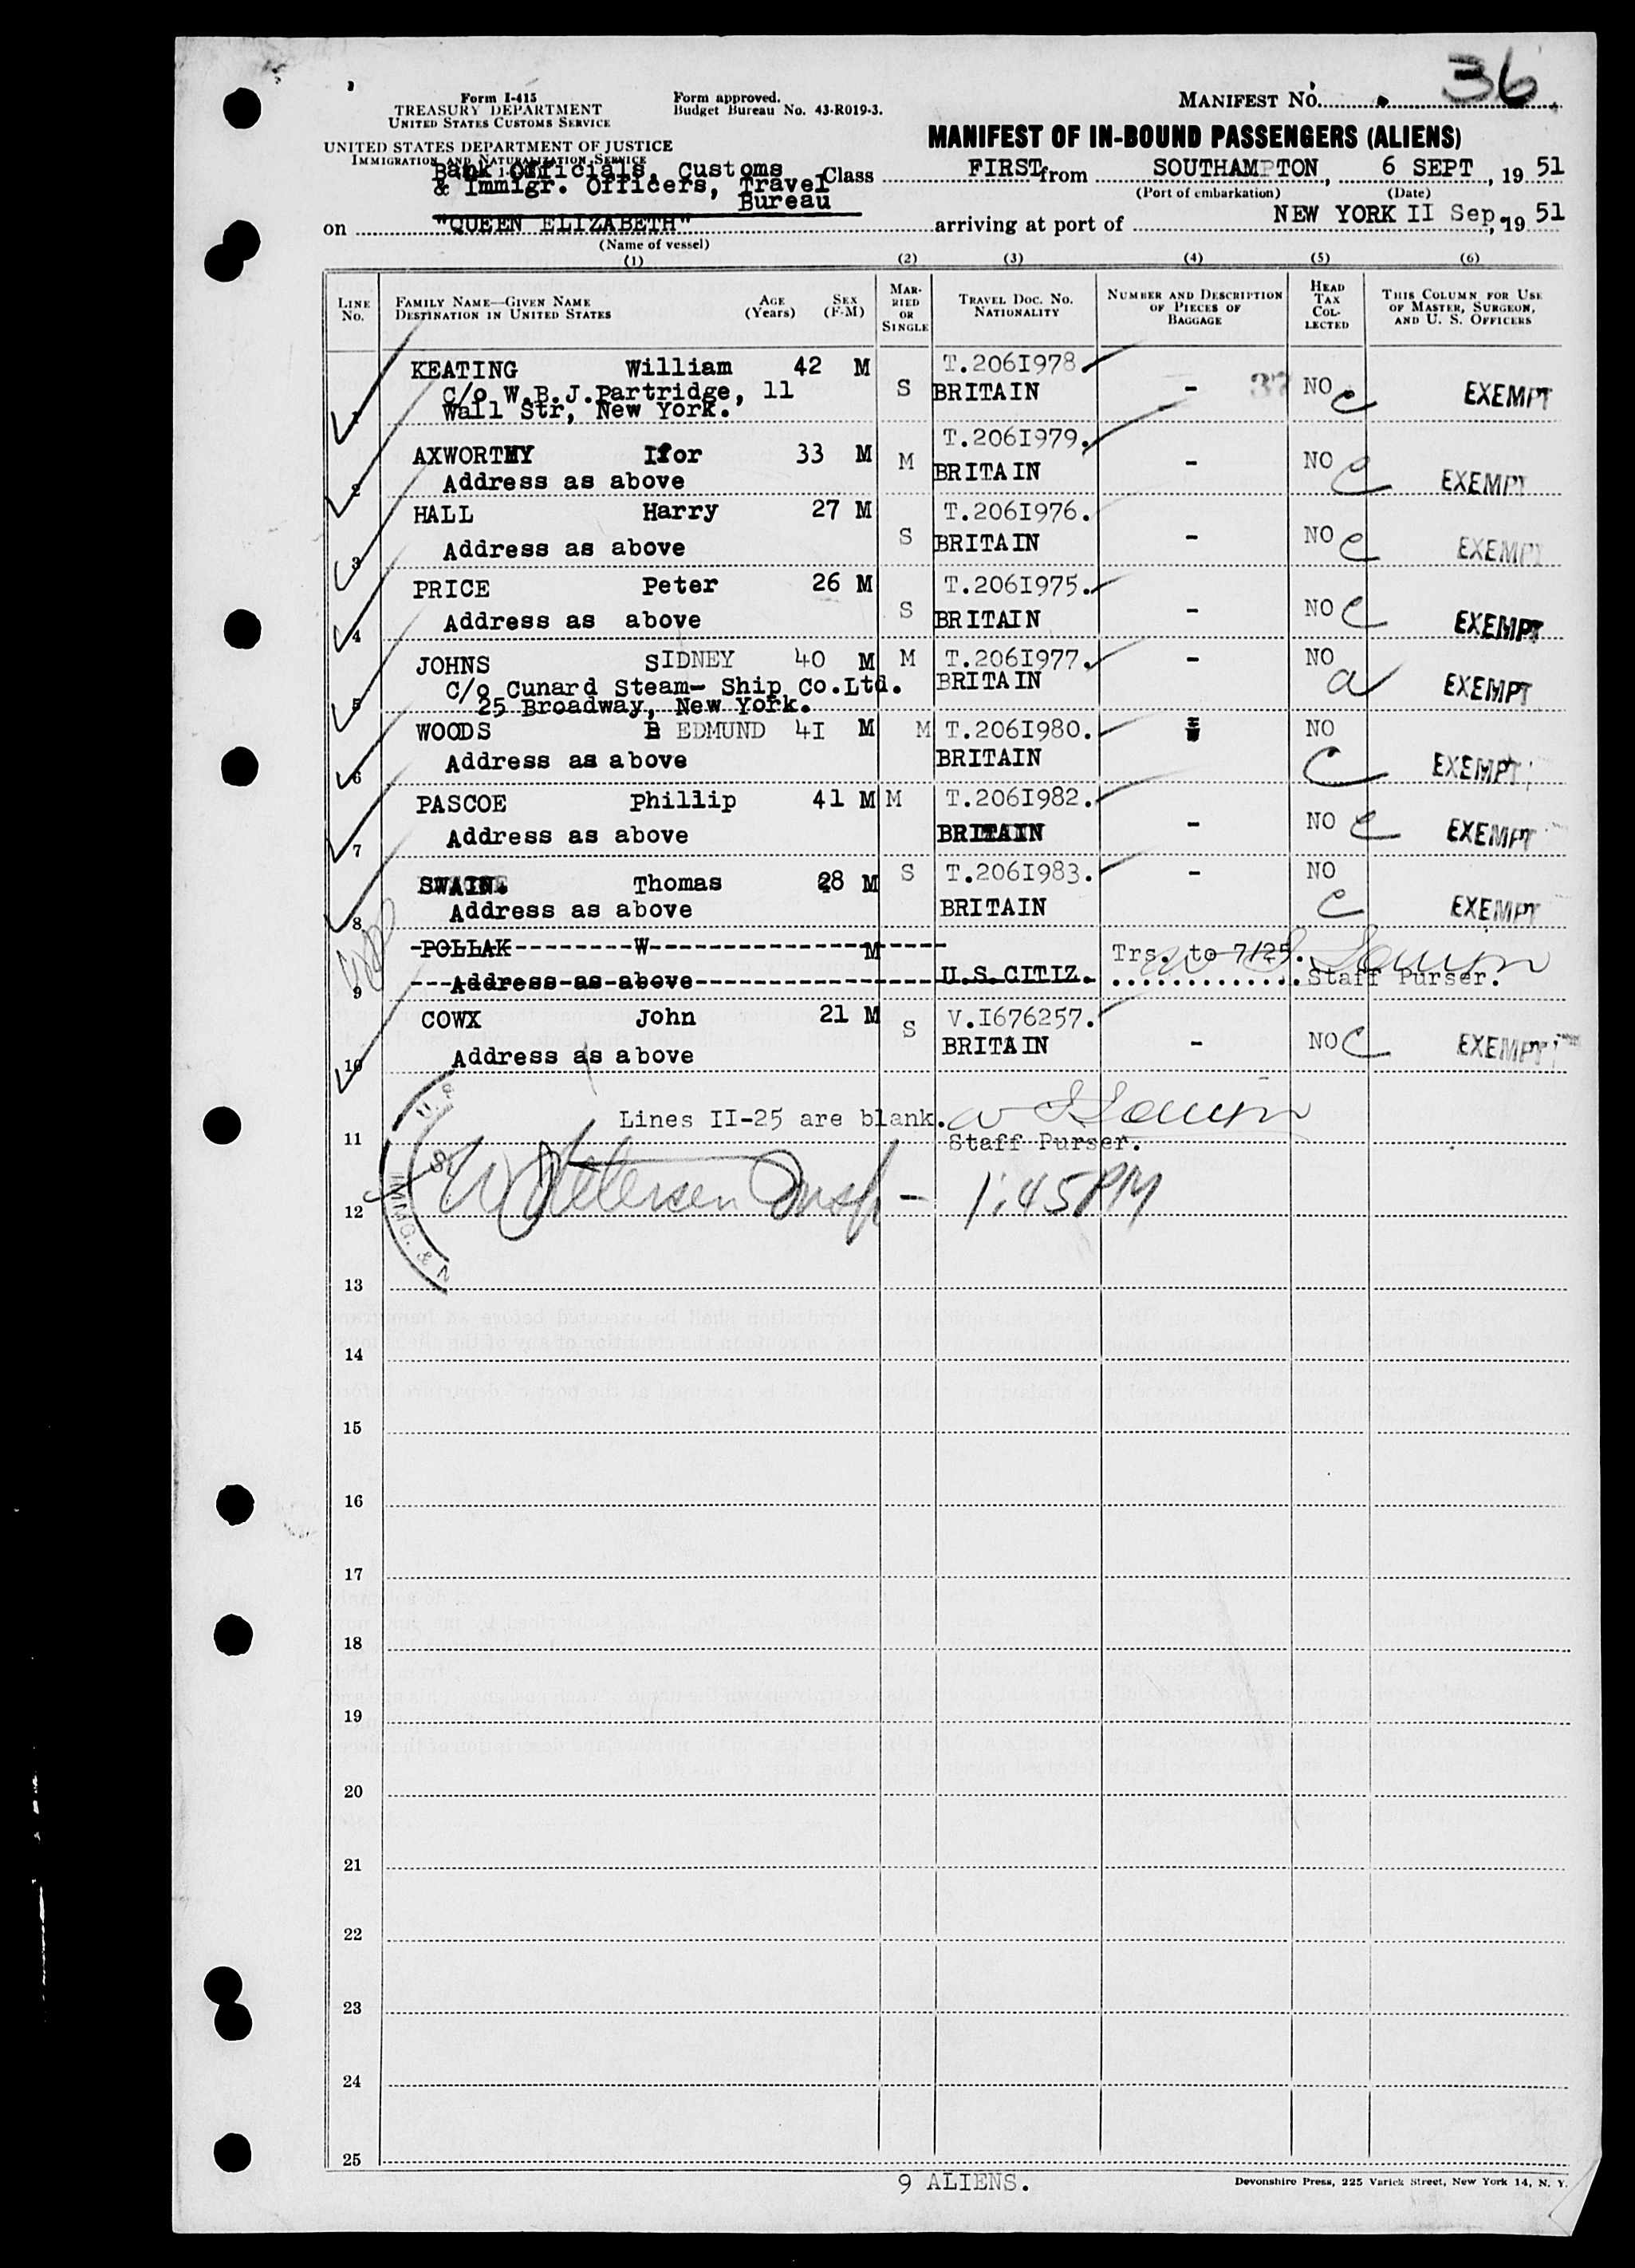 36
Form I-415
TREASURY DEPARTMENT
UNITED STATES CUSTOMS SERVICE
Form approved.
Budget Bureau No. 43-R019-3.
MANIFEST NO.
UNITED STATES DEPARTMENT OF JUSTICE
IMMIGRATION AND NATURALIZATION SERVICE
MANIFEST OF IN-BOUND PASSENGERS (ALIENS)
Bank Officials, Customs
& Immigr. Officers, Travel
Bureau
Class FIRST from SOUTHAMPTON, 6 SEPT, 19 51
(Port of embarkation) (Date)
on "QUEEN ELIZABETH" arriving at port of NEW YORK II Sep., 19 51
(Name of vessel)
(1) (2) (3) (4) (5) (6)
LINE NO. FAMILY NAME—GIVEN NAME DESTINATION IN UNITED STATES AGE (Years) SEX (F-M) MARRIED OR SINGLE TRAVEL DOC. NO. NATIONALITY NUMBER AND DESCRIPTION OF PIECES OF BAGGAGE HEAD TAX COLLECTED THIS COLUMN FOR USE OF MASTER, SURGEON, AND U. S. OFFICERS
1 KEATING William 42 M S T.206I978. - 37 NO c EXEMPT
C/o W.B.J.Partridge, 11 BRITAIN
Wall Str, New York.
2 AXWORTHY Ifor 33 M M T.206I979. - NO c EXEMPT
Address as above BRITAIN
3 HALL Harry 27 M S T.206I976. - NO c EXEMPT
Address as above BRITAIN
4 PRICE Peter 26 M S T.206I975. - NO c EXEMPT
Address as above BRITAIN
5 JOHNS SIDNEY 40 M M T.206I977. - NO a EXEMPT
C/o Cunard Steam- Ship Co.Ltd. BRITAIN
25 Broadway, New York.
6 WOODS E EDMUND 4I M M T.206I980. NO c EXEMPT
Address as above BRITAIN
7 PASCOE Phillip 41 M M T.206I982. - NO c EXEMPT
Address as above BRITAIN
8 SWAIN. Thomas 28 M S T.206I983. - NO c EXEMPT
Address as above BRITAIN
9 POLLAK W M Trs. to 7/25.
Address as above U.S.CITIZ. Staff Purser.
10 COWX John 21 M S V.I676257. - NO c EXEMPT
Address as above BRITAIN
U. S. IMMIG. & N
Lines II-25 are blank.
11 Staff Purser.
12 Insp - 1:45PM
13
14
15
16
17
18
19
20
21
22
23
24
25
9 ALIENS.
Devonshire Press, 225 Varick Street, New York 14, N. Y.